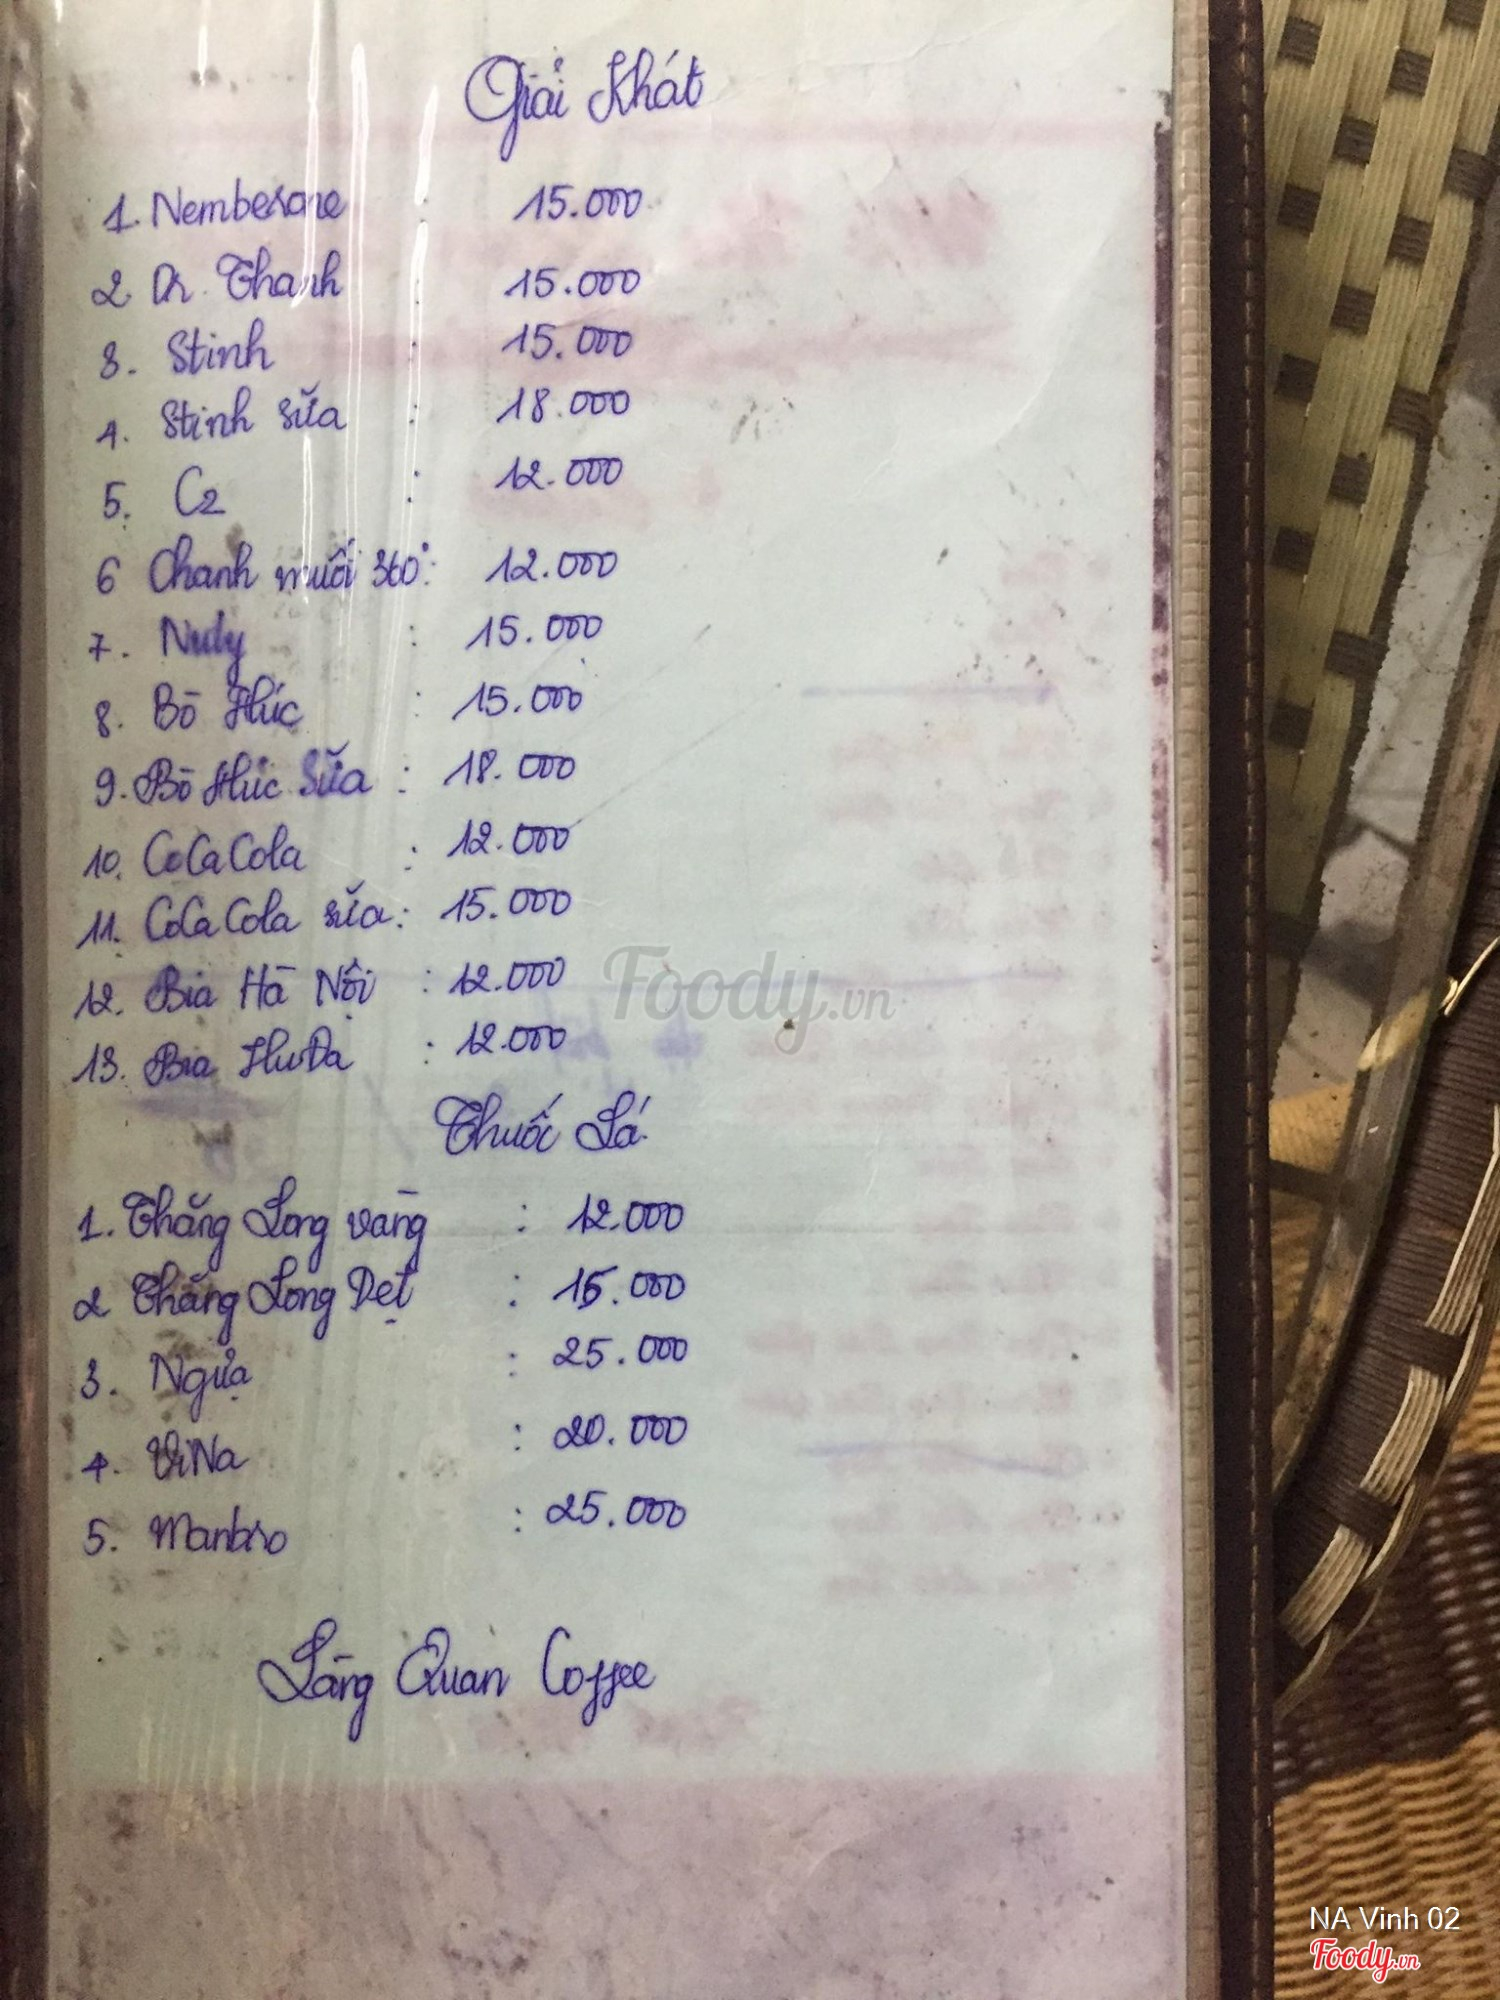 Giải Khát
1. Nemberone : 15.000
2 Dr. Thanh : 15.000
3. Stinh : 15.000
4. Stinh sữa : 18.000
5. C2 : 12.000
6 Chanh muối 360°: 12.000
7. Nuly : 15.000
8. Bò Húc : 15.000
9. Bò Húc Sữa : 18.000
10. CoCaCola : 12.000
11. CoCaCola sữa: 15.000
12. Bia Hà Nội : 12.000
13. Bia HuDa : 12.000
Thuốc Lá
1. Thăng Long vàng : 12.000
2 Thăng Long Dẹt : 15.000
3. Ngựa : 25.000
4. ViNa : 20.000
5. Manbro : 25.000
Lãng Quan Coffee
Foody.vn
NA Vinh 02
Foody.vn